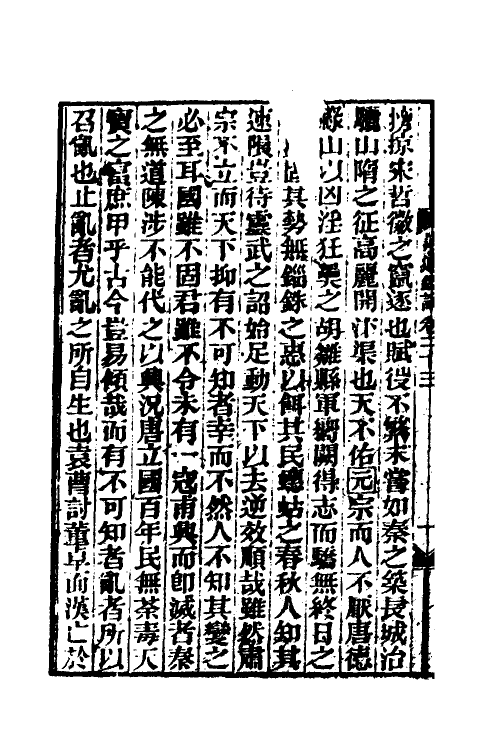 掠宋哲徽之竄逐也賦役不繁未嘗如秦之築長城治
驪山隋之征高麗開汴渠也天不佑元宗而人不厭唐德
祿山以凶淫狂𤢜之胡雛縣軍嚮闕得志而驕無終日之
其勢無錙銖之惠以餌其民蟪蛄之春秋人知其
速隕豈待靈武之詔始足動天下以去逆效順哉雖然肅
宗不立而天下抑有不可知者幸而不然人不知其變之
必至耳國雖不固君雖不令未有一寇甫興而卽滅者秦
之無道陳涉不能代之以興況唐立國百年民無荼毒天
寶之富庶甲乎古今豈易傾哉而有不可知者亂者所以
召亂也止亂者尤亂之所自生也袁曹討董卓而漢亡於
卷二十三